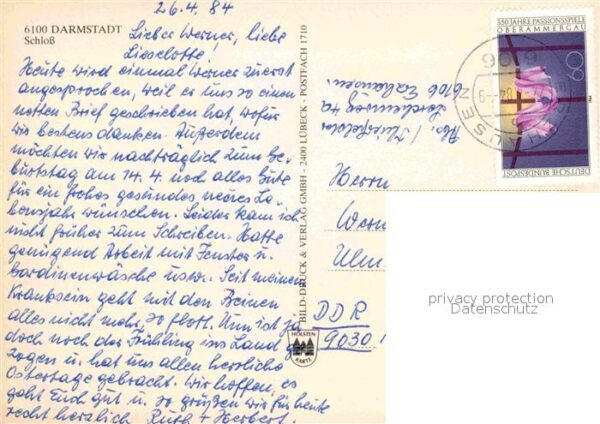 26.4.84
6100 DARMSTADT
Schloß
Lieber Werner, liebe
Lieselotte!
Heute wird einmal Werner zuerst
angesprochen, weil er uns so einen
netten Brief geschrieben hat, wofür
wir bestens danken. Außerdem
möchten wir nachträglich zum Ge-
burtstag am 14.4. noch alles Gute
für ein frohes gesundes neues Le-
bensjahr wünschen. Leider kam ich
nicht früher zum Schreiben. Hatte
genügend Arbeit mit Fenster u.
Gardinenwäsche usw. Seit meinem
Kranksein geht mit den Beinen
alles nicht mehr so flott. Nun ist ja
doch noch der Frühling ins Land ge-
zogen u. hat uns allen herrliche
Ostertage gebracht. Wir hoffen, es
geht Euch gut u. so grüßen wir für heute
recht herzlich Ruth + Herbert.
BILD-DRUCK & VERLAG GMBH - 2400 LÜBECK - POSTFACH 1710
HOLSTEN
KARTE
Abs.
6106 Erzhausen
350 JAHRE PASSIONSSPIELE
OBERAMMERGAU
60
DEUTSCHE BUNDESPOST
6106
Herrn
Wern
Ulm
DDR
9030
privacy protection
Datenschutz